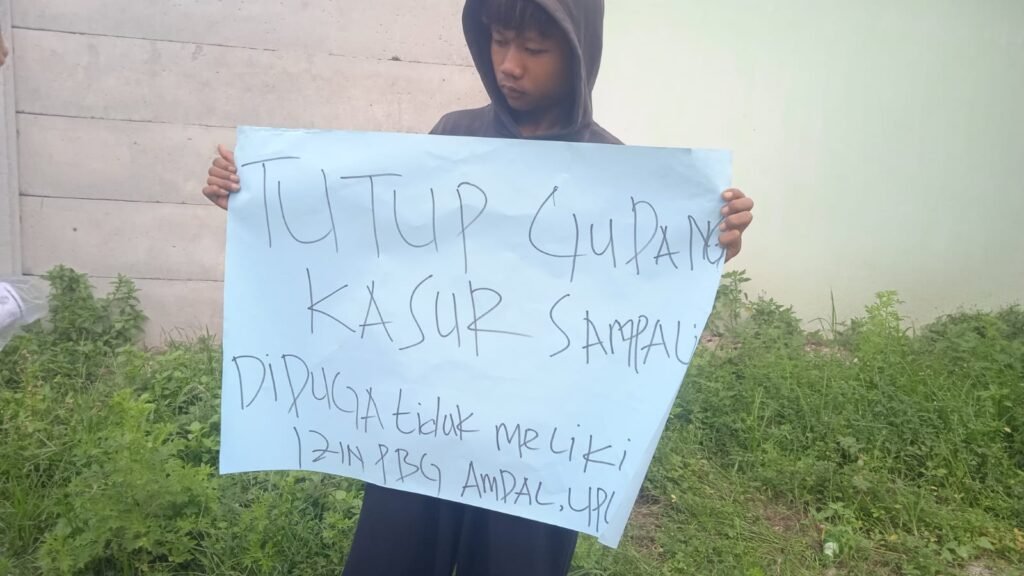 TUTUP GUDANG
KASUR SAMPALI
DIDUGA tiduk MeLiKi
IZIN PBG AMDAL, UPL